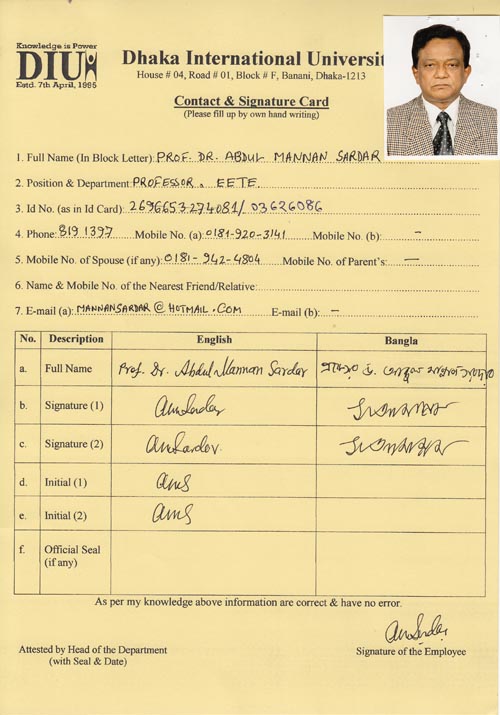 Knowledge is Power
DIU
Estd. 7th April, 1995
Dhaka International Universit
House # 04, Road # 01, Block # F, Banani, Dhaka-1213
Contact & Signature Card
(Please fill up by own hand writing)
1. Full Name (In Block Letter): PROF. DR. ABDUL MANNAN SARDAR
2. Position & Department PROFESSOR. EETE.
3. Id No. (as in Id Card): 2696653274081/03626086
4. Phone: 819 1397 Mobile No. (a): 0181-920-3141 Mobile No. (b): –
5. Mobile No. of Spouse (if any): 0181-942-4804 Mobile No. of Parent's: —
6. Name & Mobile No. of the Nearest Friend/Relative:
7. E-mail (a): MANNANSARDAR@HOTMAIL.COM E-mail (b): –
No. Description English Bangla
a. Full Name Prof. Dr. Abdul Mannan Sardar
b. Signature (1) AmSardar
c. Signature (2) AmSardar
d. Initial (1) AmS
e. Initial (2) AmS
f. Official Seal
(if any)
As per my knowledge above information are correct & have no error.
AmSardar
Attested by Head of the Department
(with Seal & Date)
Signature of the Employee